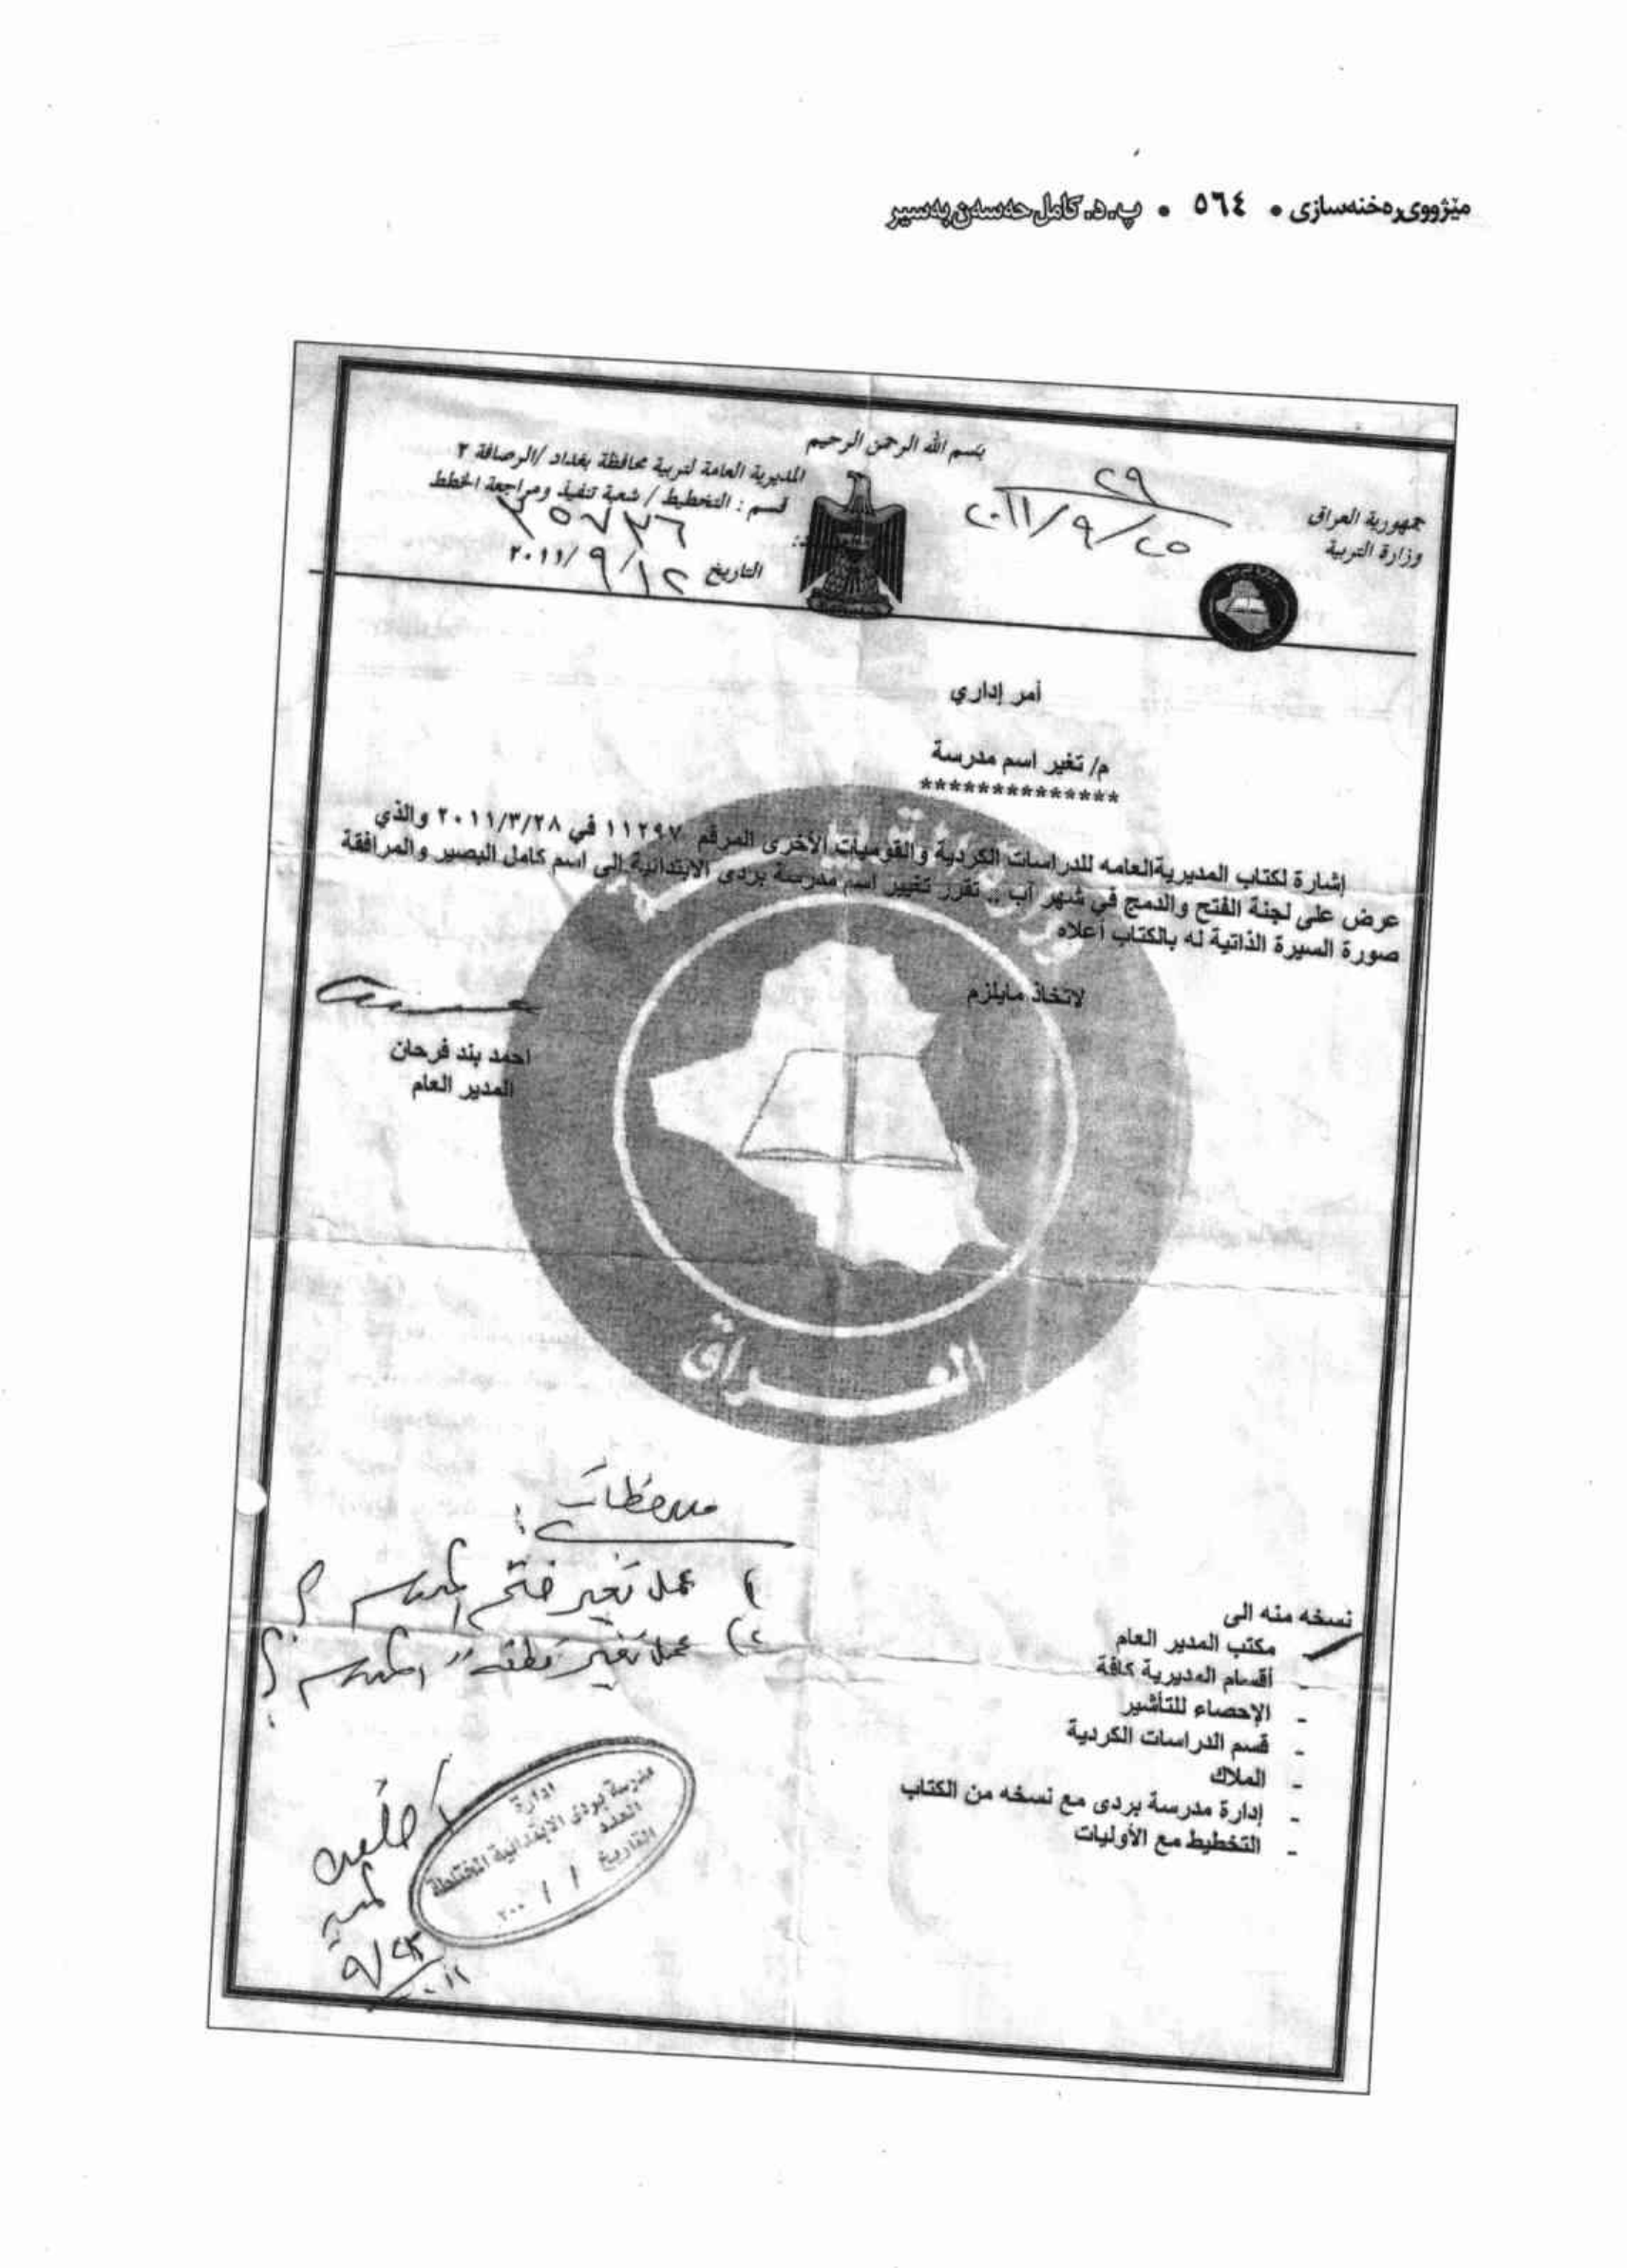 مێژووی ڕەخنەسازی • ٥٦٤ • پ.د. کامل حەسەن بەسیر
بسم الله الرحمن الرحيم
جمهورية العراق
وزارة التربية
٢٩
٢٠١١/٩/٢٥
المديرية العامة لتربية محافظة بغداد /الرصافة ٢
قسم : التخطيط / شعبة تنفيذ ومراجعة الخطط
٣٥٧٣٦
التاريخ ٢٠١١/٩/١٢
أمر إداري
م/ تغير اسم مدرسة
**************
إشارة لكتاب المديريةالعامه للدراسات الكردية والقوميات الأخرى المرقم ١١٢٩٧ في ٢٠١١/٣/٢٨ والذي
عرض على لجنة الفتح والدمج في شهر آب .. تقرر تغيير اسم مدرسة بردى الابتدائية إلى اسم كامل البصير والمرافقة
صورة السيرة الذاتية له بالكتاب أعلاه
لاتخاذ مايلزم
احمد بند فرحان
المدير العام
العراق
ملاحظات :
١) عمل تغير ختم المدرسة ؟
٢) عمل تغير المدرسة ؟
نسخه منه الى
مكتب المدير العام
- أقسام المديرية كافة
- الإحصاء للتأشير
- قسم الدراسات الكردية
- الملاك
- إدارة مدرسة بردى مع نسخه من الكتاب
- التخطيط مع الأوليات
ادارة
مدرسة بردى الابتدائية المختلطة
العدد
التاريخ / / ٢٠٠